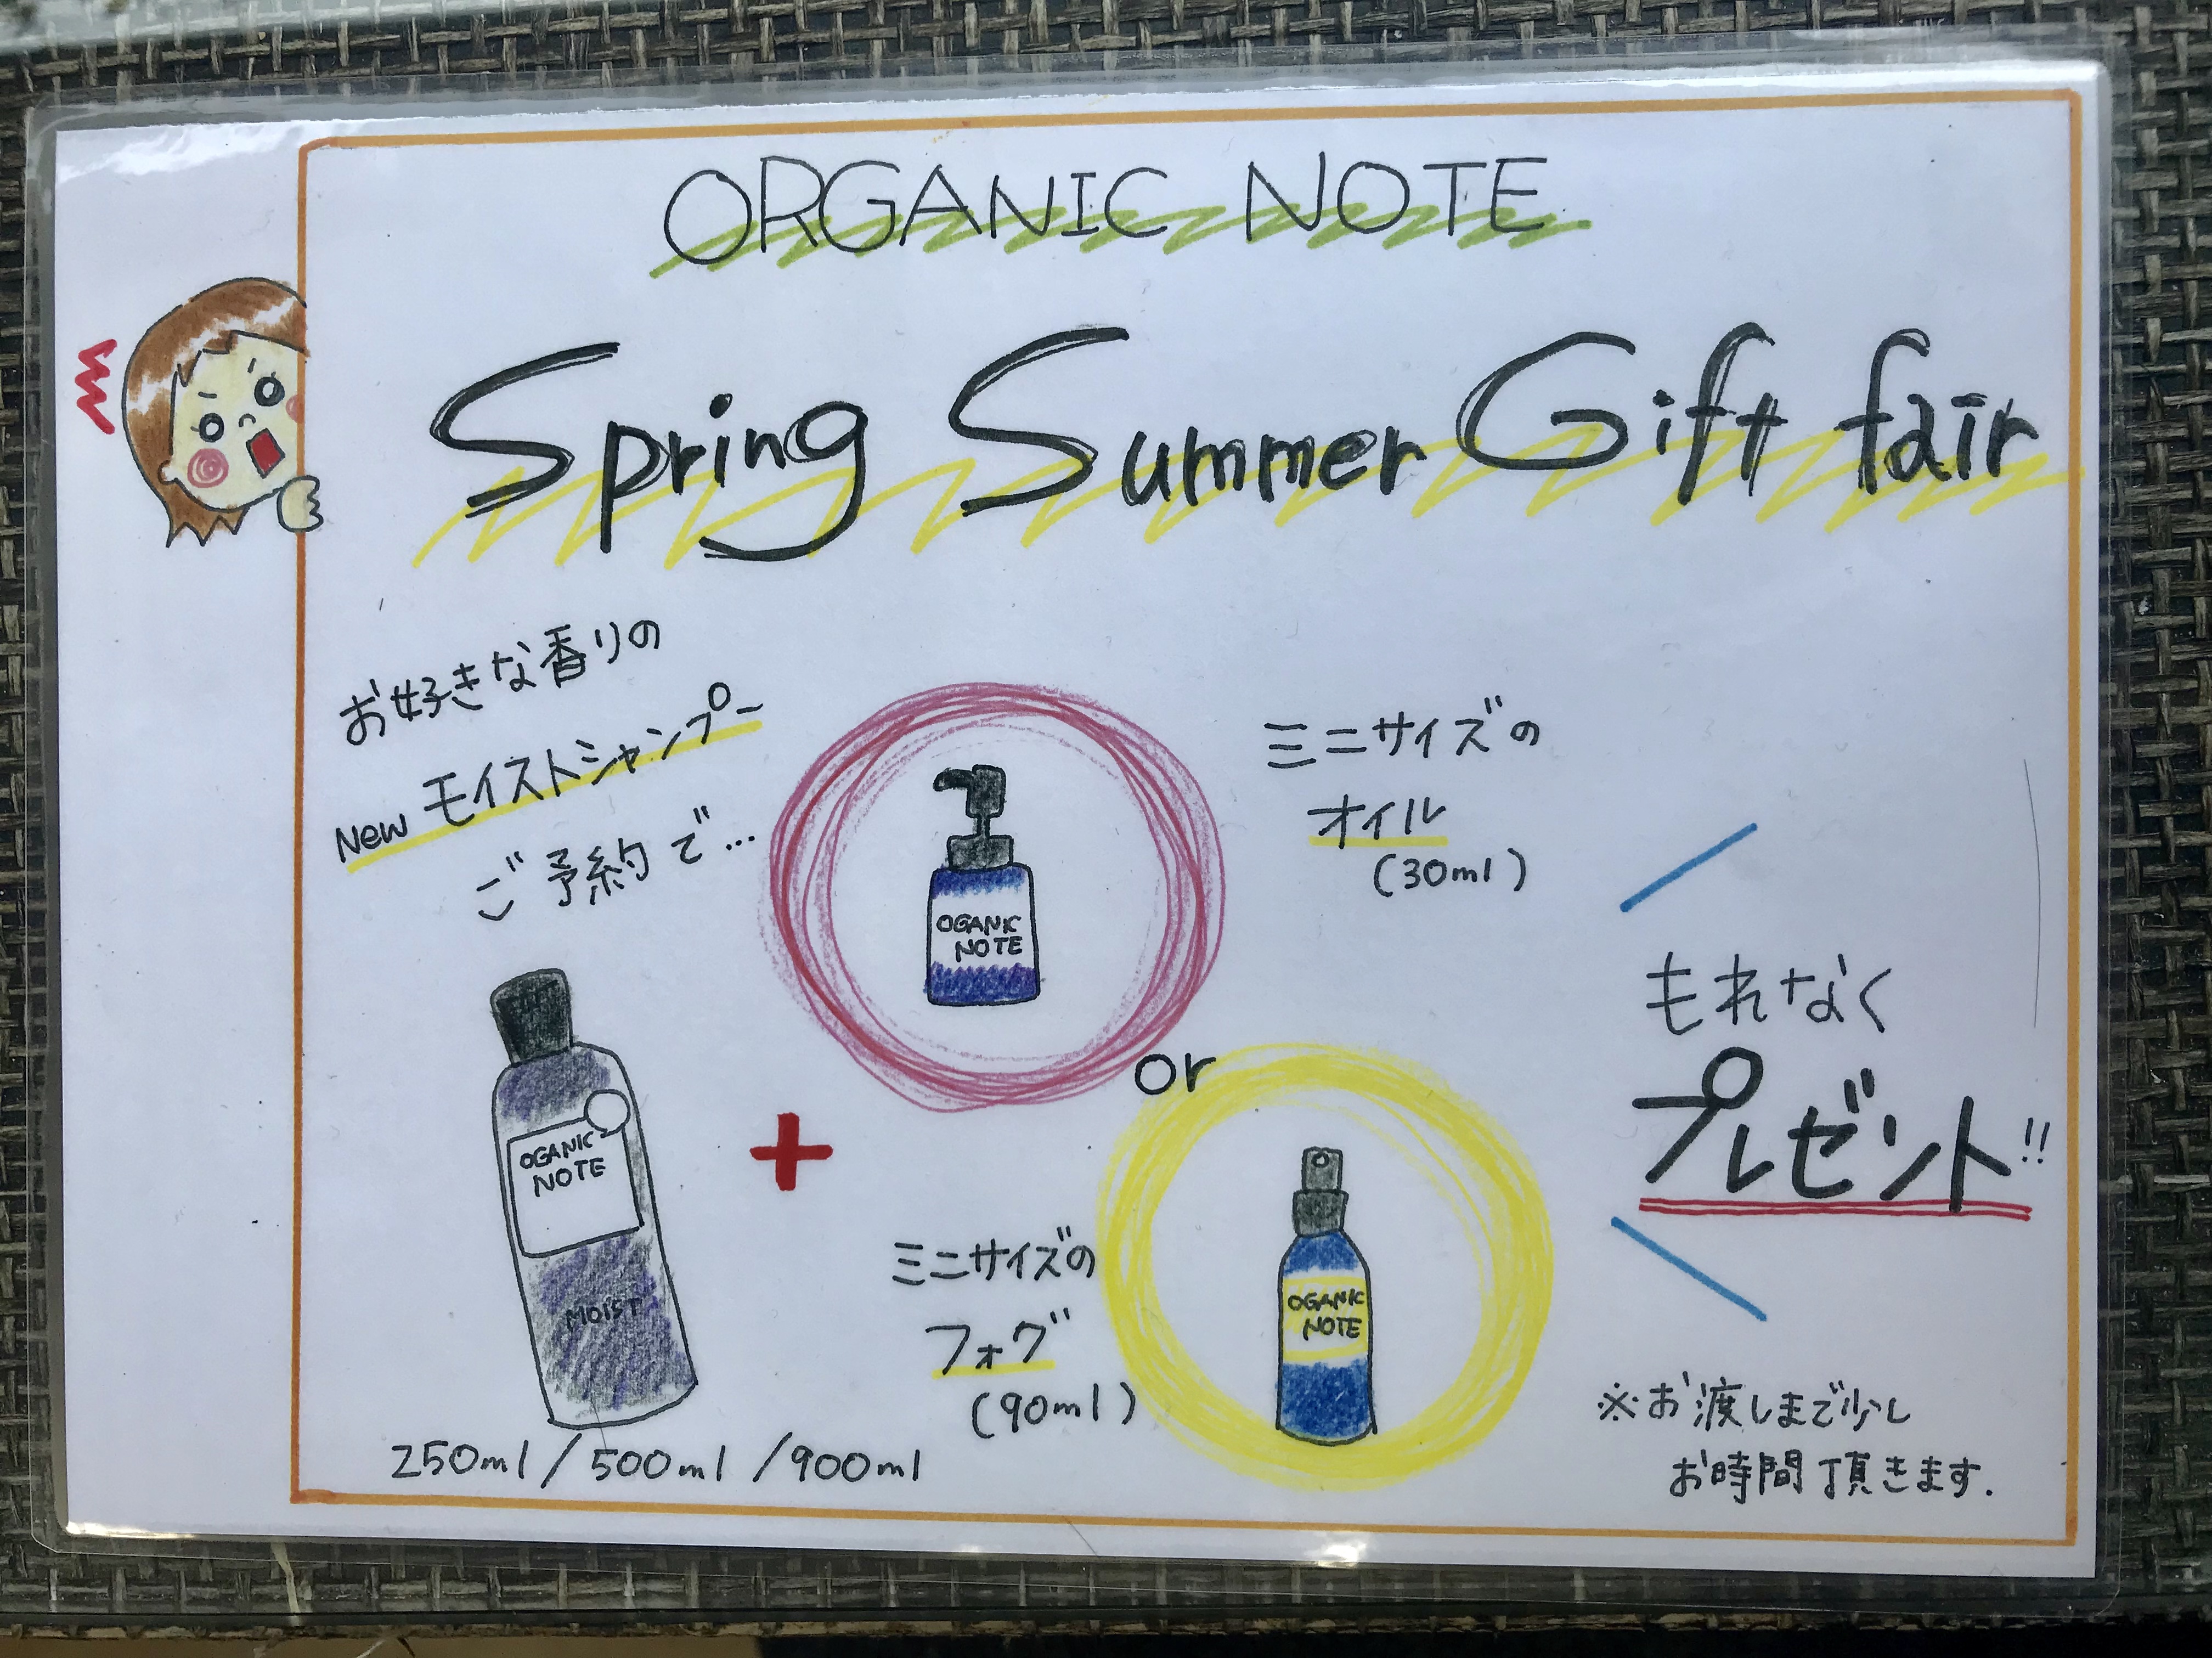 ORGANIC NOTE
Spring Summer Gift fair
お好きな香りの
New モイストシャンプー
ご予約で…
OGANIC
NOTE
ミニサイズの
オイル
(30ml)
or
もれなく
プレゼント!!
OGANIC
NOTE
MOIST
+
250ml/500ml/900ml
ミニサイズの
フォグ
(90ml)
OGANIC
NOTE
※お渡しまで少し
お時間頂きます.